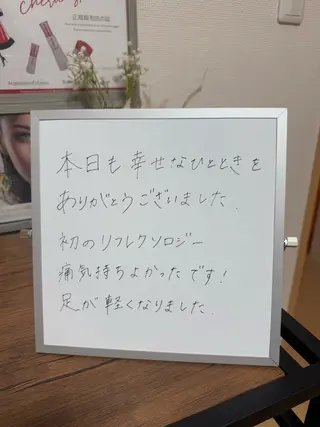 正規販売店の証
本日も幸せなひとときを
ありがとうございました.
初のリフレクソロジー
痛気持ちよかったです！
足が軽くなりました.